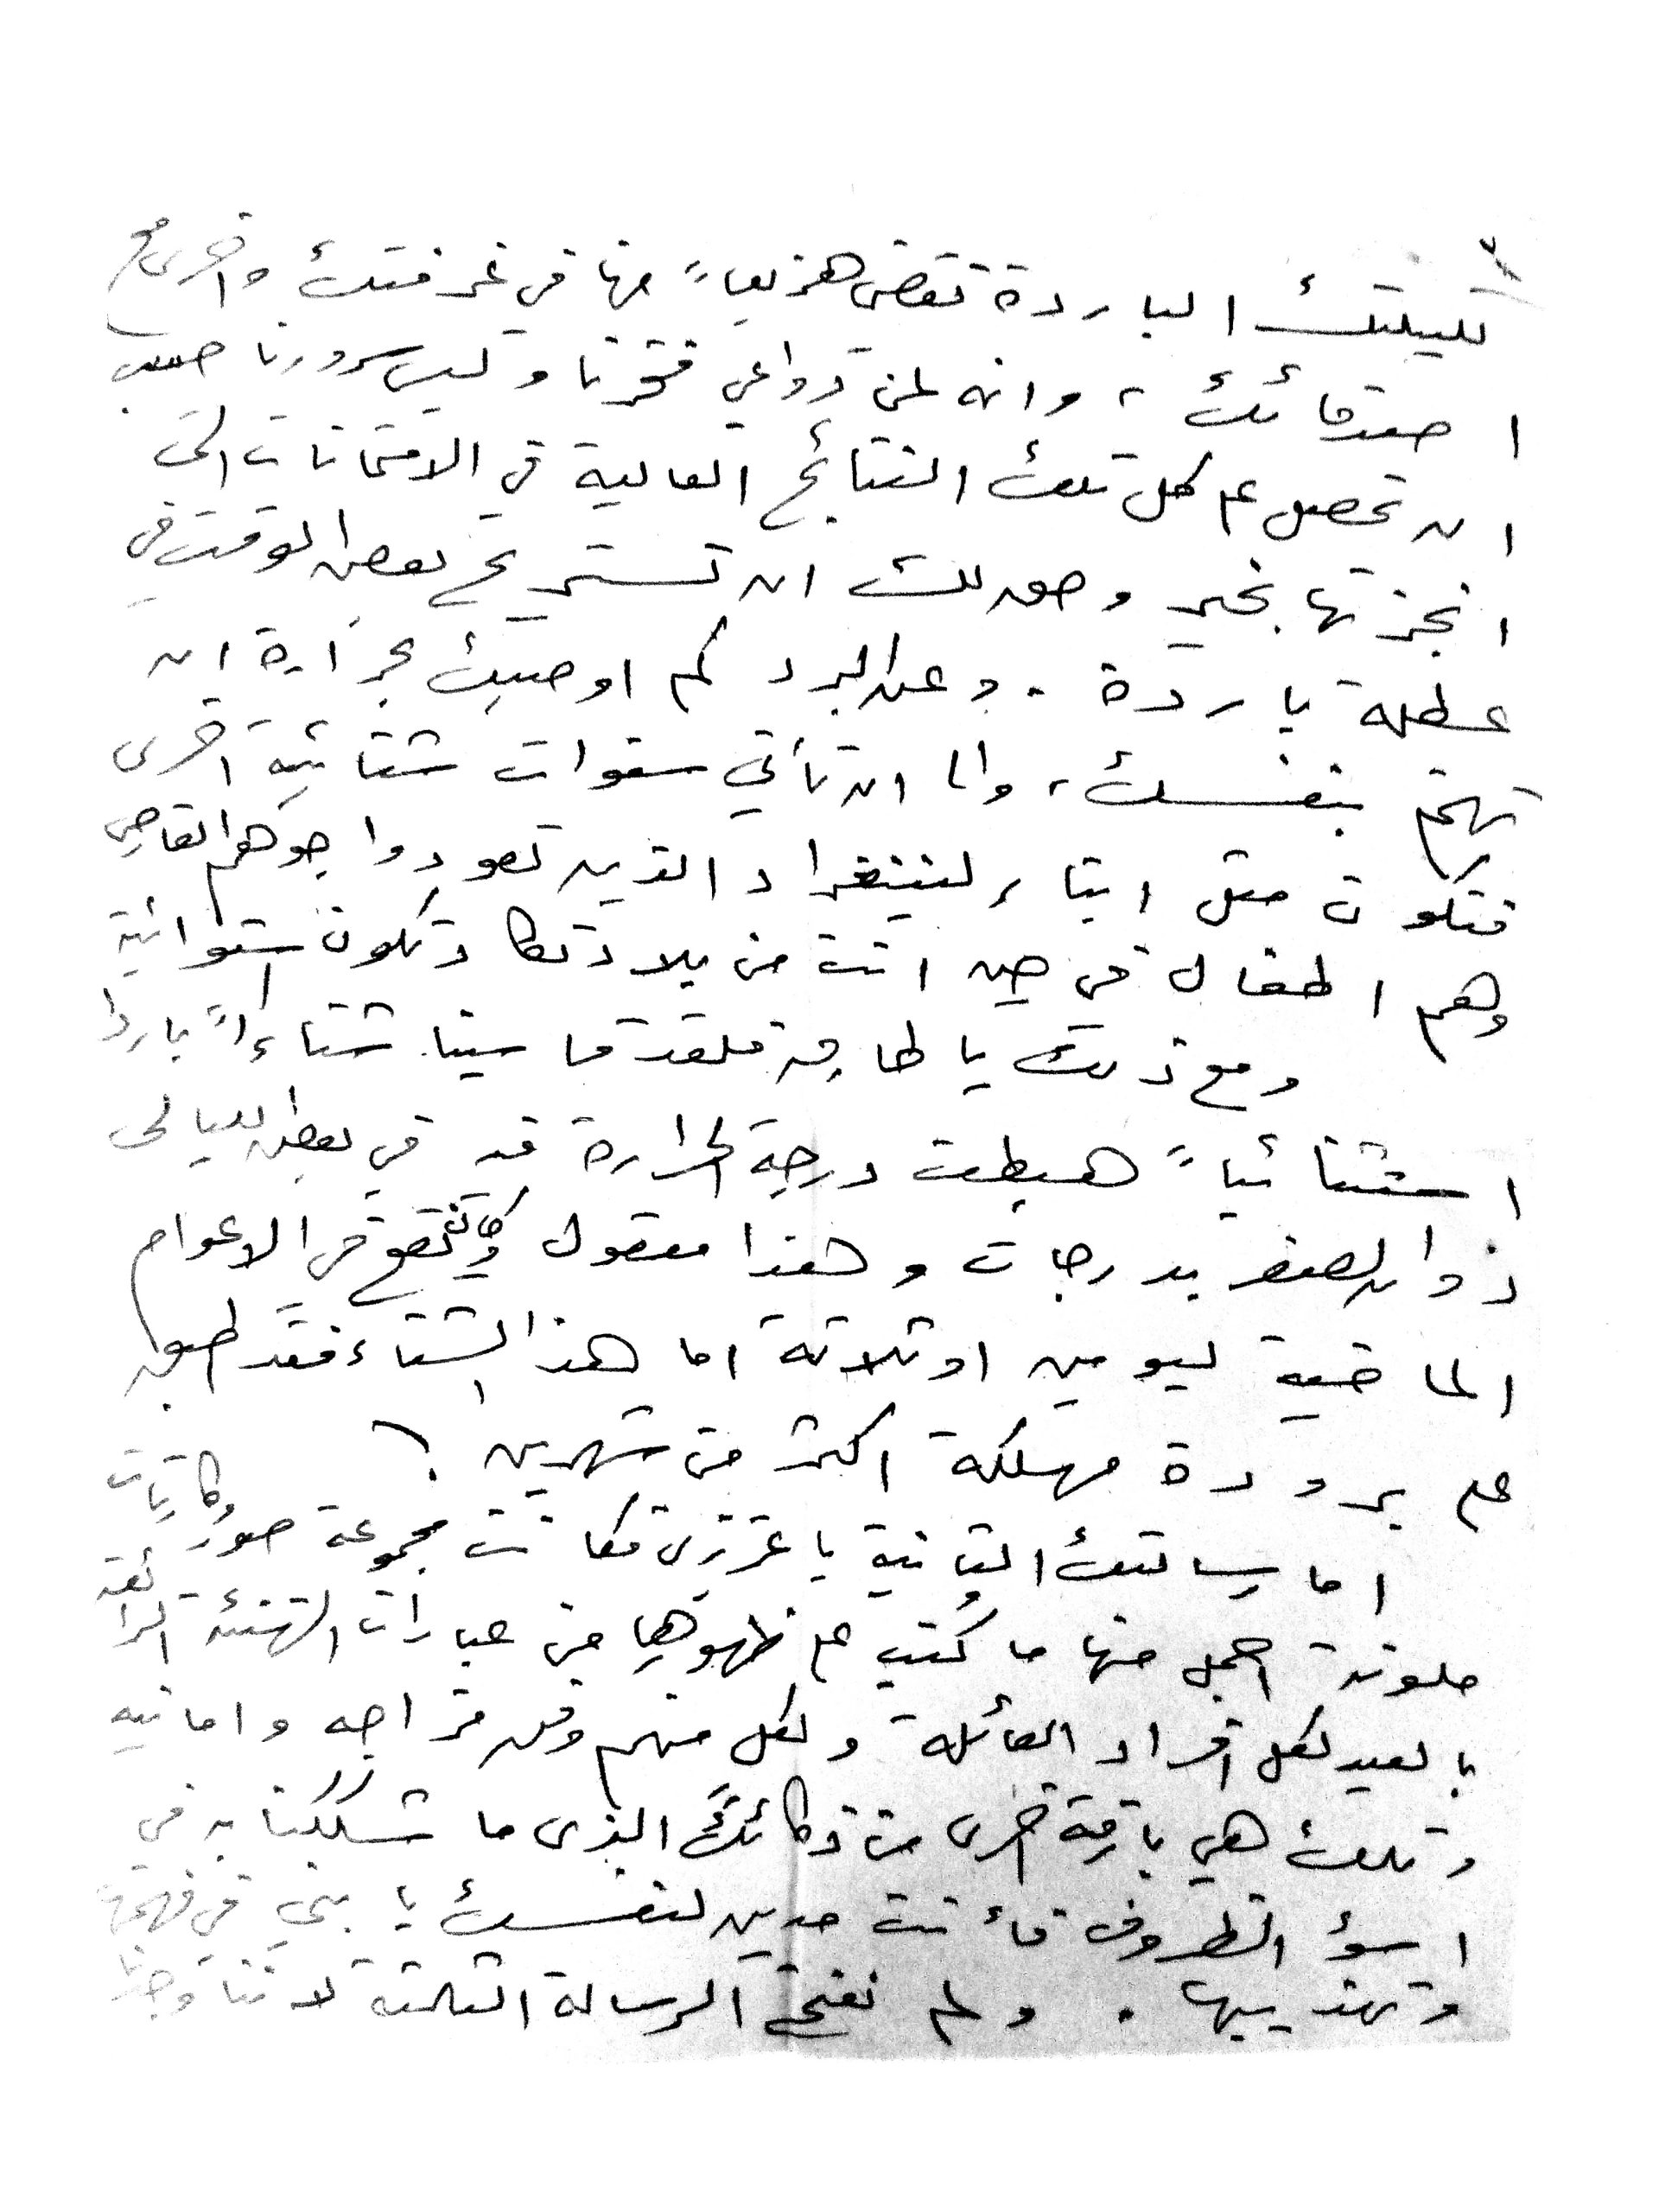 لليلتك الباردة تقضي هزيعاً منها في غرفتك واخرى مع
اصدقائك ، وانه لمن دواعي فخرنا وليس سرورنا حسب
ان تحصل على كل تلك النتائج العالية في الامتحانات التي
انجزتها بخير وحق لك ان تستريح بعض الوقت في
عطلة باردة . وعن البرد كم اوصيك بحرارة ان
تهتم بنفسك ، والى ان تأتي سنوات شتائية اخرى
فتكون مثل ابناء لنينغراد الذين تعودوا جوهم القاصي
وهم اطفال في حين انت من بلاد تكاد تكون استوائية
ومع ذلك يا طارق فلقد قاسينا شتاءاً بارداً
استثنائياً هبطت درجة الحرارة فيه في بعض الليالي
دون الصفر بدرجات وهذا معقول وكان يقع في الاعوام
الماضية ليومين او ثلاثة اما هذا الشتاء فقد اطبق
على برودة مهلكة اكثر من شهرين !
اما رسالتك الثانية يا عزيزي فكانت مجموعة صور وكارتات
ملونة اجمل منها ما كُتب على ظهورها من عبارات التهنئة الرائعة
بالعيد لكل افراد العائلة ولكل منهم وفق مزاجه وامانيه
وتلك هي باقة اخرى من ذكائك الذي ما شككنا به في
اسوأ الظروف فأنت مدين لنفسك يا بني في فهمها
وتهذيبها . ولم نفتح الرسالة الثالثة لاننا وجدنا